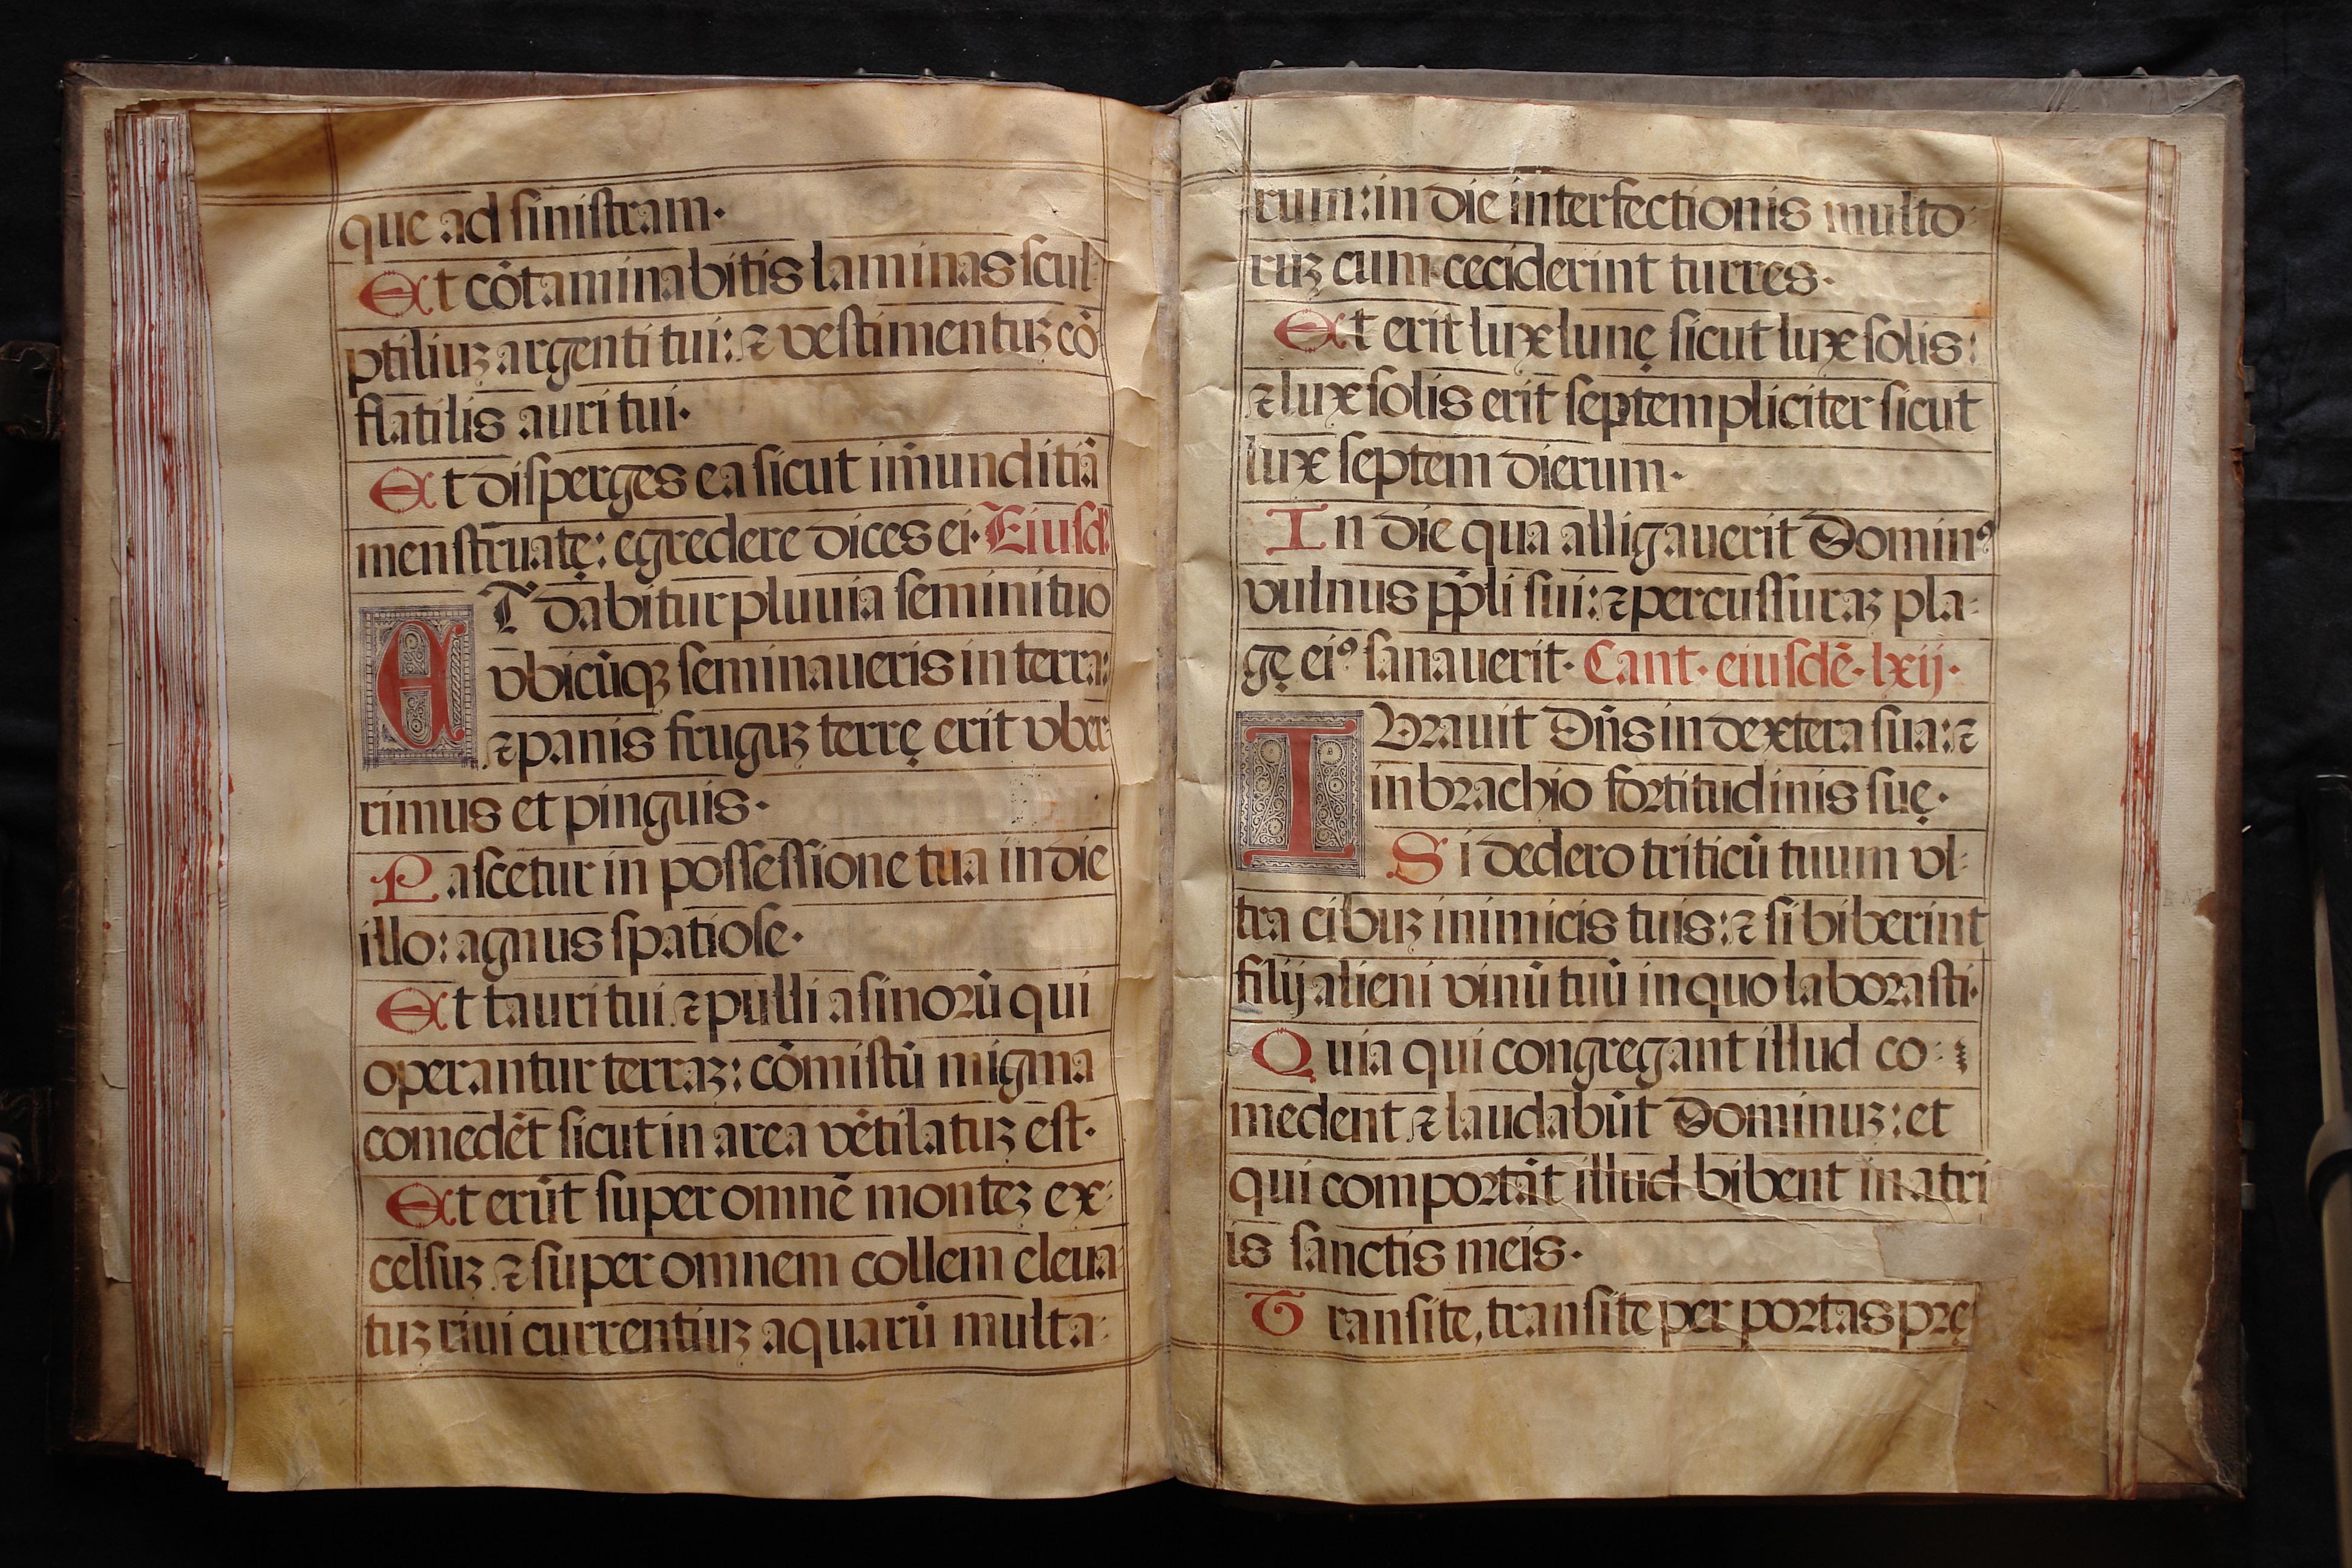 que ad sinistram·
Et cõtaminabitis laminas scul-
ptiliuꝫ argenti tui: ⁊ vestimentuꝫ cõ
flatilis auri tui·
Et disperges ea sicut im̃unditiã
menstruatę: egredere dices ei· Eiusd̃
ET dabitur pluuia semini tuo
vbicũqꝫ seminaueris in terra:
⁊ panis fruguꝫ terrę erit vber-
rimus et pinguis·
Pascetur in possessione tua in die
illo: agnus spatiose·
Et tauri tui ⁊ pulli asinorũ qui
operantur terraꝫ: cõmistũ migma
comedẽt sicut in area vẽtilatuꝫ est·
Et erũt super omnẽ monteꝫ ex-
celsuꝫ ⁊ super omnem collem eleua-
tuꝫ riui currentiuꝫ aquarũ multa-
rum: in die interfectionis multo-
ruꝫ cum ceciderint turres·
Et erit lux lunę sicut lux solis:
⁊ lux solis erit septempliciter sicut
lux septem dierum·
In die qua alligauerit Dominꝰ
vulnus pp̃li sui: ⁊ percussuraꝫ pla-
gę eiꝰ sanauerit· Cant· eiusdẽ· lxij·
IVrauit Dñs in dextera sua: ⁊
in brachio fortitudinis suę·
Si dedero triticũ tuum vl-
tra cibuꝫ inimicis tuis: ⁊ si biberint
filij alieni vinũ tuũ in quo laborasti·
Quia qui congregant illud co-
medent ⁊ laudabũt Dominuꝫ: et
qui comportãt illud bibent in atri
is sanctis meis·
Transite, transite per portas prę